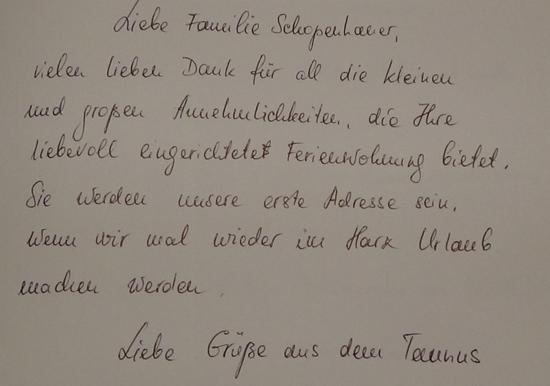 Liebe Familie Schopenhauer,
vielen lieben Dank für all die kleinen
und großen Annehmlichkeiten, die Ihre
liebevoll eingerichtete Ferienwohnung bietet.
Sie werden unsere erste Adresse sein,
wenn wir mal wieder im Harz Urlaub
machen werden.
Liebe Grüße aus dem Taunus